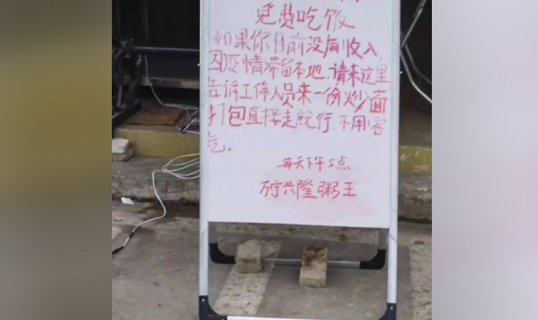 免费吃饭
如果你目前没有收入,
因疫情滞留本地.请来这里
告诉工作人员来一份炒面
打包直接走就行,不用客
气。
每天下午5点
兴隆粥王